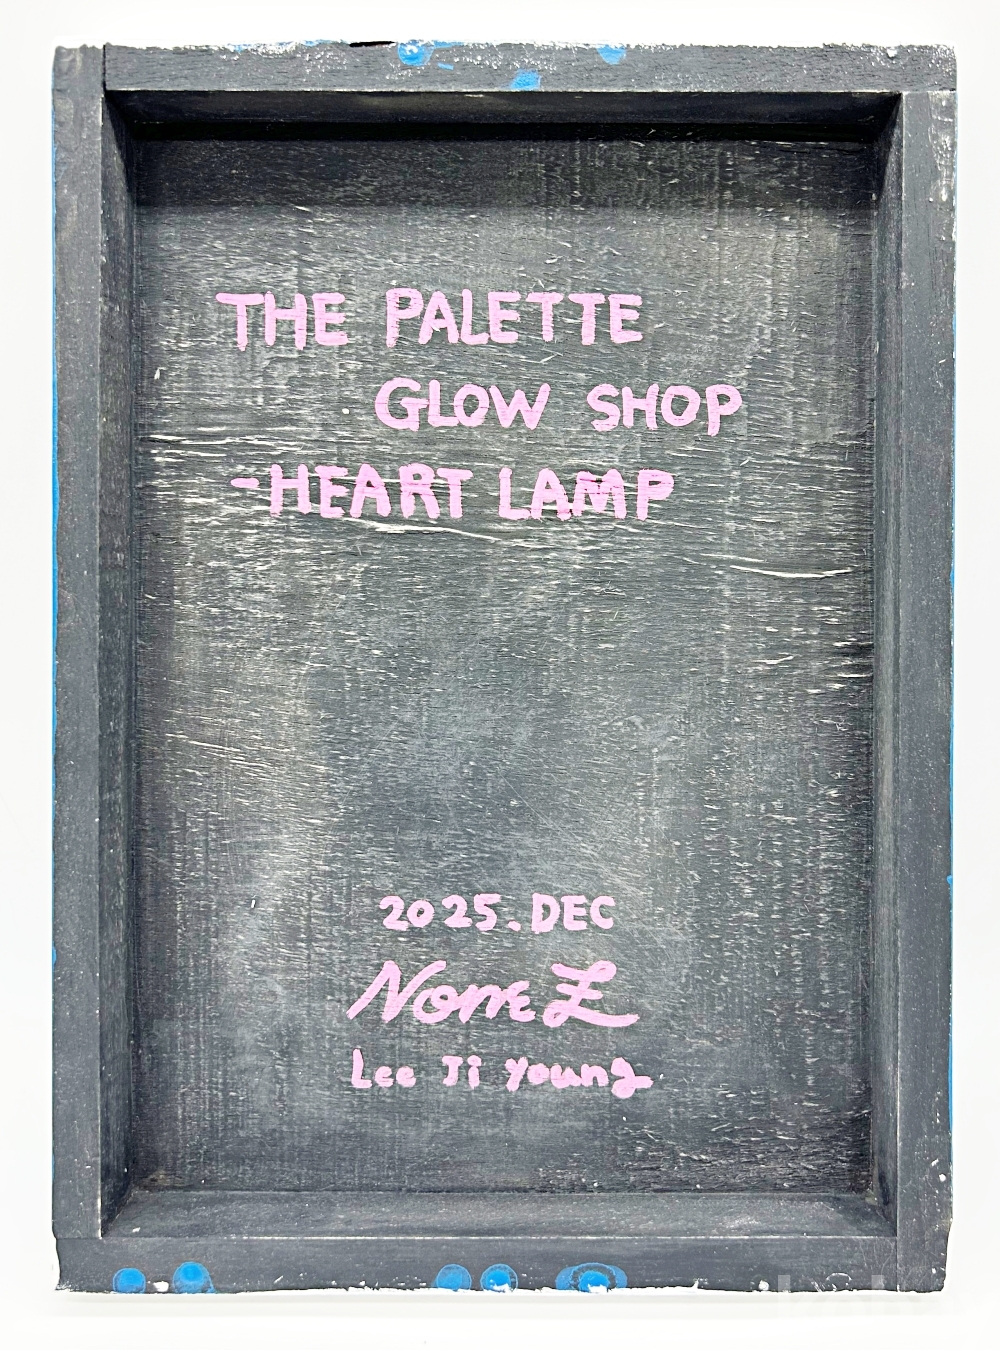 THE PALETTE
GLOW SHOP
-HEART LAMP
2025.DEC
Lee Ji Young